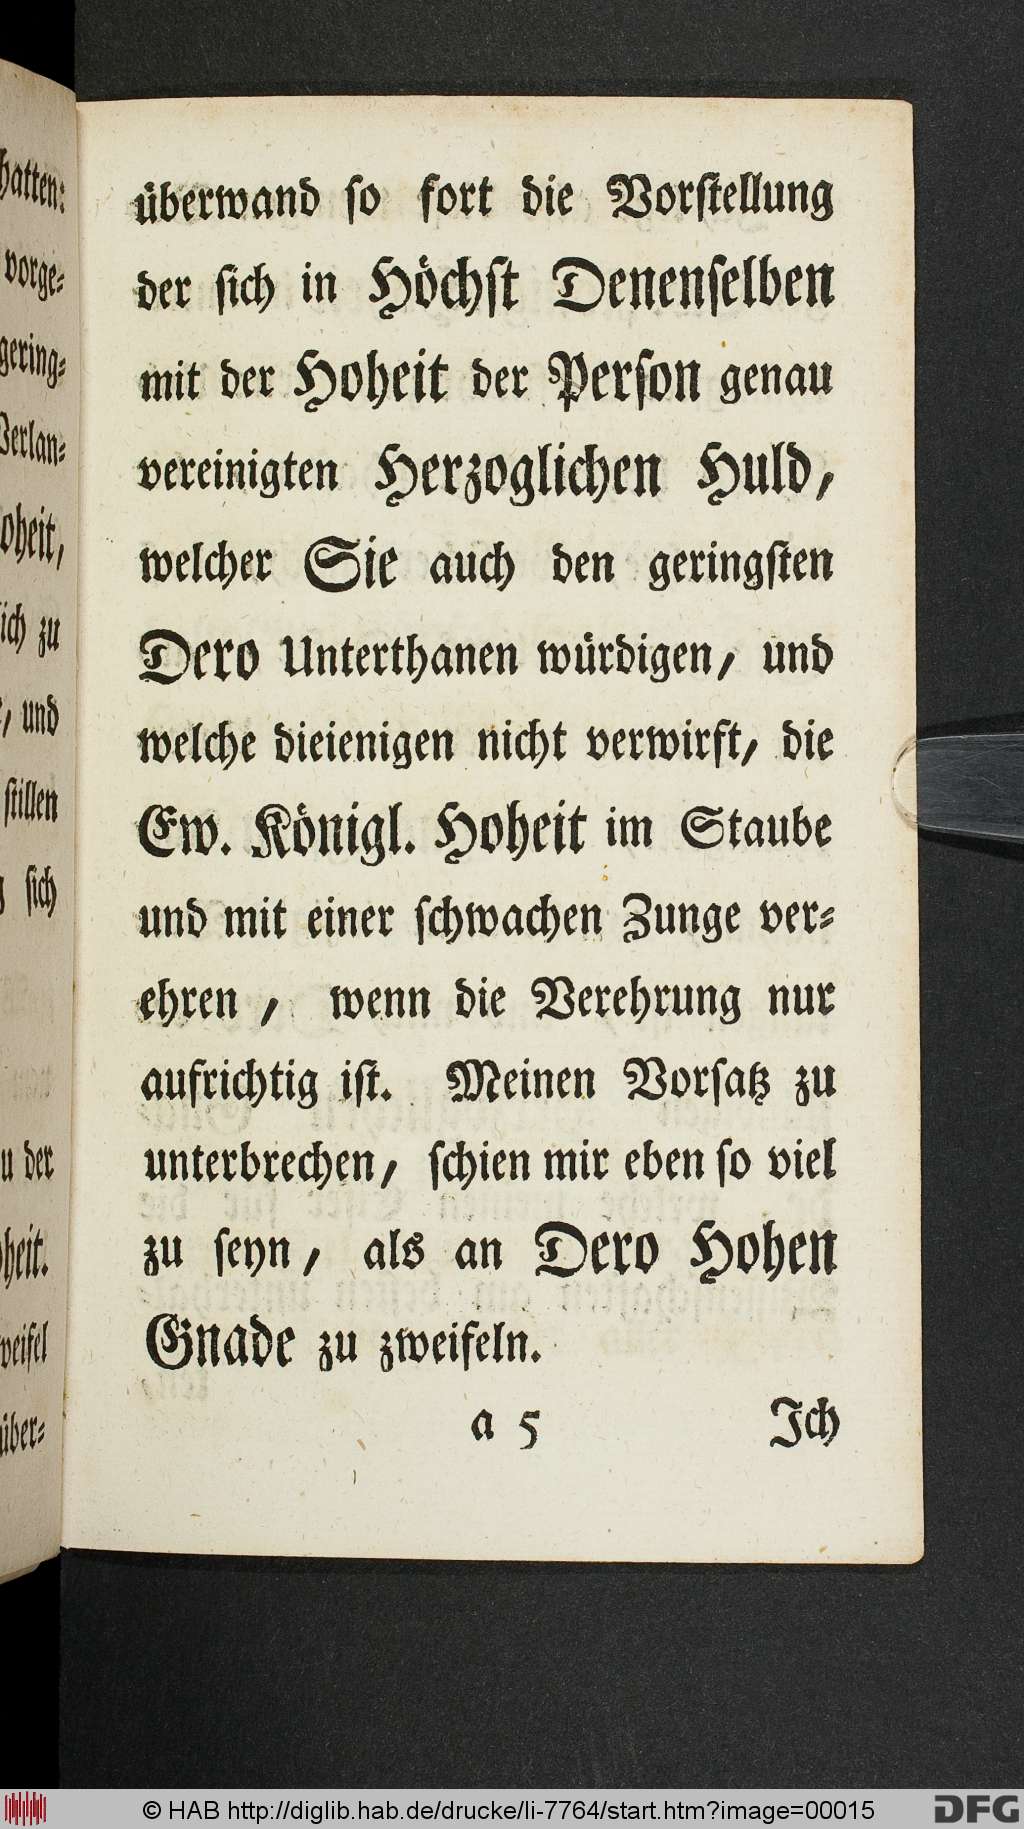 hatten:
vorge⸗
gering⸗
Verlan⸗
oheit,
ich zu
, und
stillen
sich
u der
heit.
weifel
über⸗
überwand so fort die Vorstellung
der sich in Höchst Denenselben
mit der Hoheit der Person genau
vereinigten Herzoglichen Huld,
welcher Sie auch den geringsten
Dero Unterthanen würdigen, und
welche dieienigen nicht verwirft, die
Ew. Königl. Hoheit im Staube
und mit einer schwachen Zunge ver⸗
ehren, wenn die Verehrung nur
aufrichtig ist. Meinen Vorsatz zu
unterbrechen, schien mir eben so viel
zu seyn, als an Dero Hohen
Gnade zu zweifeln.
a 5 Ich
© HAB http://diglib.hab.de/drucke/li-7764/start.htm?image=00015
DFG